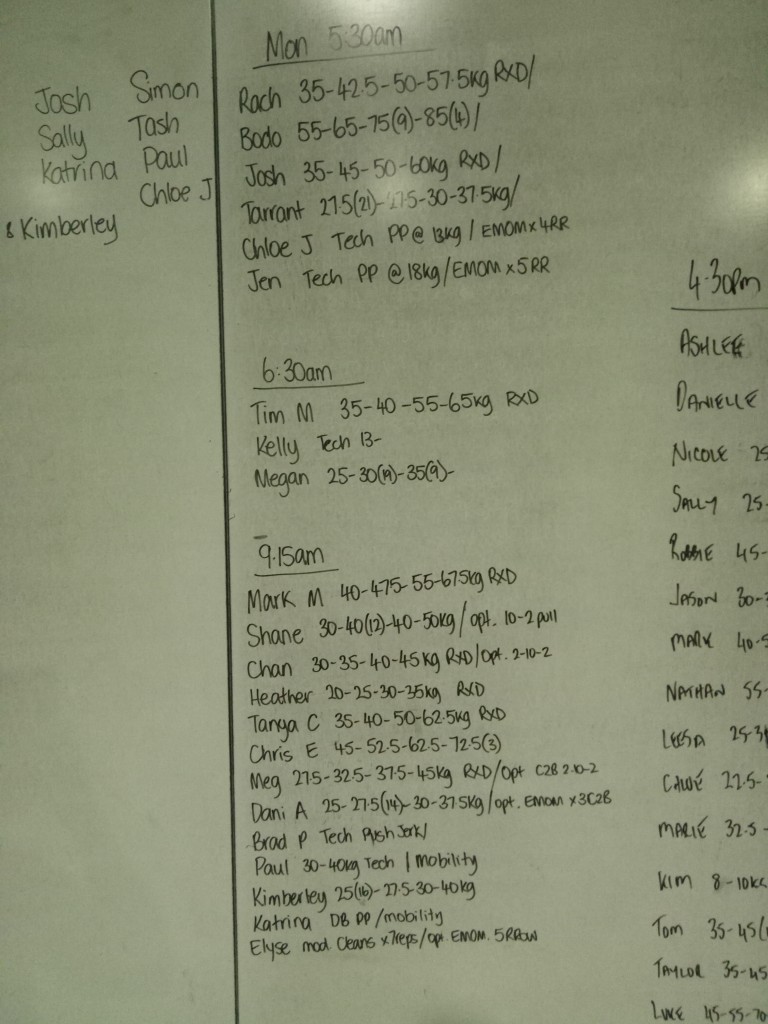 Josh Simon
Sally Tash
Katrina Paul
Chloe J
& Kimberley
Mon 5:30am
Rach 35-42.5-50-57.5kg RXD/
Bodo 55-65-75(9)-85(4)/
Josh 35-45-50-60kg RXD/
Tarrant 27.5(21)-27.5-30-37.5kg/
Chloe J Tech PP@ 13kg / EMOM x 4RR
Jen Tech PP @18kg/EMOM x 5 RR
6:30am
Tim M 35-40-55-65kg RXD
Kelly Tech 13-
Megan 25-30(19)-35(9)-
9.15am
Mark M 40-47.5-55-67.5kg RXD
Shane 30-40(12)-40-50kg/opt. 10-2 pull
Chan 30-35-40-45kg RXD/opt. 2-10-2
Heather 20-25-30-35kg RXD
Tanya C 35-40-50-62.5kg RXD
Chris E 45-52.5-62.5-72.5(3)
Meg 27.5-32.5-37.5-45kg RXD/Opt C2B 2-10-2
Dani A 25-27.5(14)-30-37.5kg/opt. EMOM x 3C2B
Brad P Tech Push Jerk/
Paul 30-40kg Tech / mobility
Kimberley 25(16)-27.5-30-40kg
Katrina DB PP /mobility
Elyse mod. Cleans x7reps/opt. EMOM. 5 RRow
4.30pm
ASHLEE
DANIELLE
NICOLE 25
SALLY 25-
45-
JASON 30-3
MARK 40-5
NATHAN 55-
LEESA 25-3
22.5-
MARIE 32.5-
KIM 8-10KG
TOM 35-45(
TAYLOR 35-45
LUKE 45-55-70